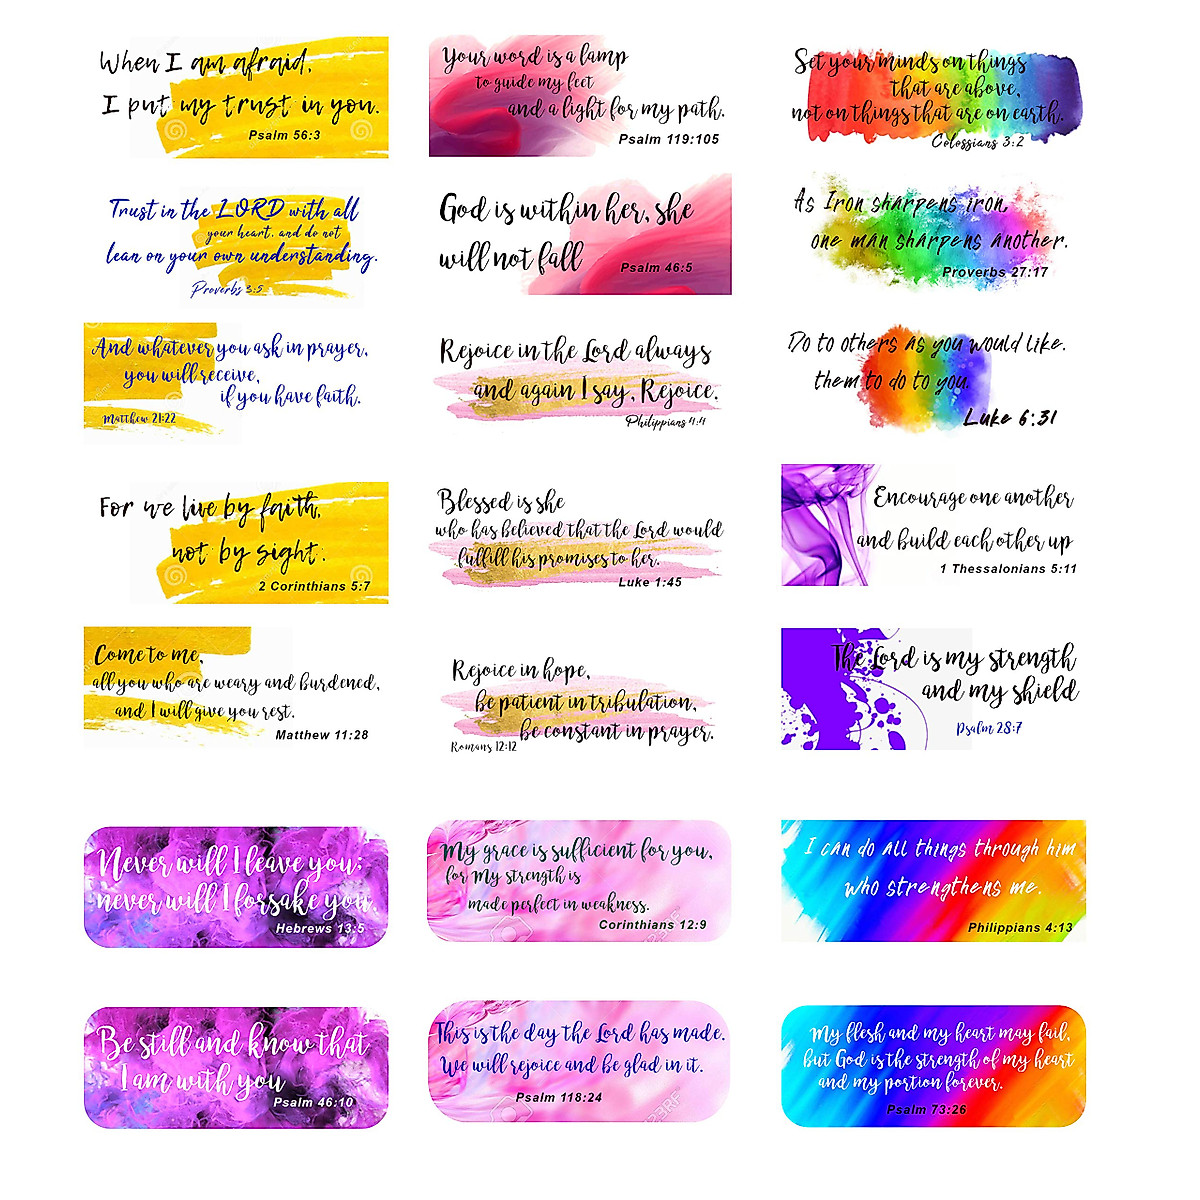 When I am afraid,
I put my trust in you.
Psalm 56:3
Your word is a lamp
to guide my feet
and a light for my path.
Psalm 119:105
Set your minds on things
that are above,
not on things that are on earth.
Colossians 3:2
Trust in the LORD with all
your heart, and do not
lean on your own understanding.
Proverbs 3:5
God is within her, she
will not fall
Psalm 46:5
As Iron sharpens iron,
one man sharpens another.
Proverbs 27:17
And whatever you ask in prayer,
you will receive,
if you have faith.
Matthew 21:22
Rejoice in the Lord always
and again I say, Rejoice.
Philippians 4:4
Do to others as you would like.
them to do to you
Luke 6:31
For we live by faith,
not by sight.
2 Corinthians 5:7
Blessed is she
who has believed that the Lord would
fulfill his promises to her.
Luke 1:45
Encourage one another
and build each other up
1 Thessalonians 5:11
Come to me,
all you who are weary and burdened,
and I will give you rest.
Matthew 11:28
Rejoice in hope,
be patient in tribulation,
be constant in prayer.
Romans 12:12
The Lord is my strength
and my shield
Psalm 28:7
Never will I leave you;
never will I forsake you.
Hebrews 13:5
My grace is sufficient for you,
for My strength is
made perfect in weakness.
Corinthians 12:9
I can do all things through him
who strengthens me.
Philippians 4:13
Be still and know that
I am with you
Psalm 46:10
This is the day the Lord has made.
We will rejoice and be glad in it.
Psalm 118:24
My flesh and my heart may fail,
but God is the strength of my heart
and my portion forever.
Psalm 73:26